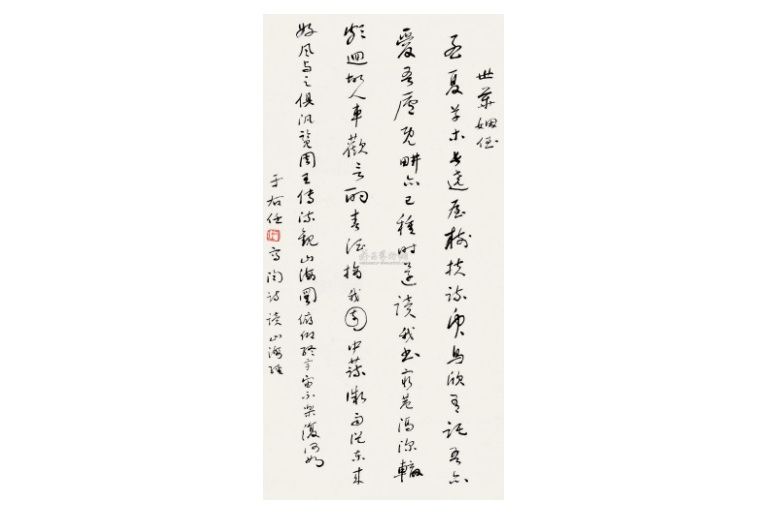 世姻侄
孟夏草木長遶屋樹扶疏眾鳥欣有託吾亦
愛吾廬既畊亦已種時還讀我書窮巷隔深轍
頗迴故人車歡言酌春酒摘我園中蔬微雨從東來
好風與之俱汎覽周王傳流觀山海圖俯仰終宇宙不樂復何如
于右任 寫陶詩讀山海經